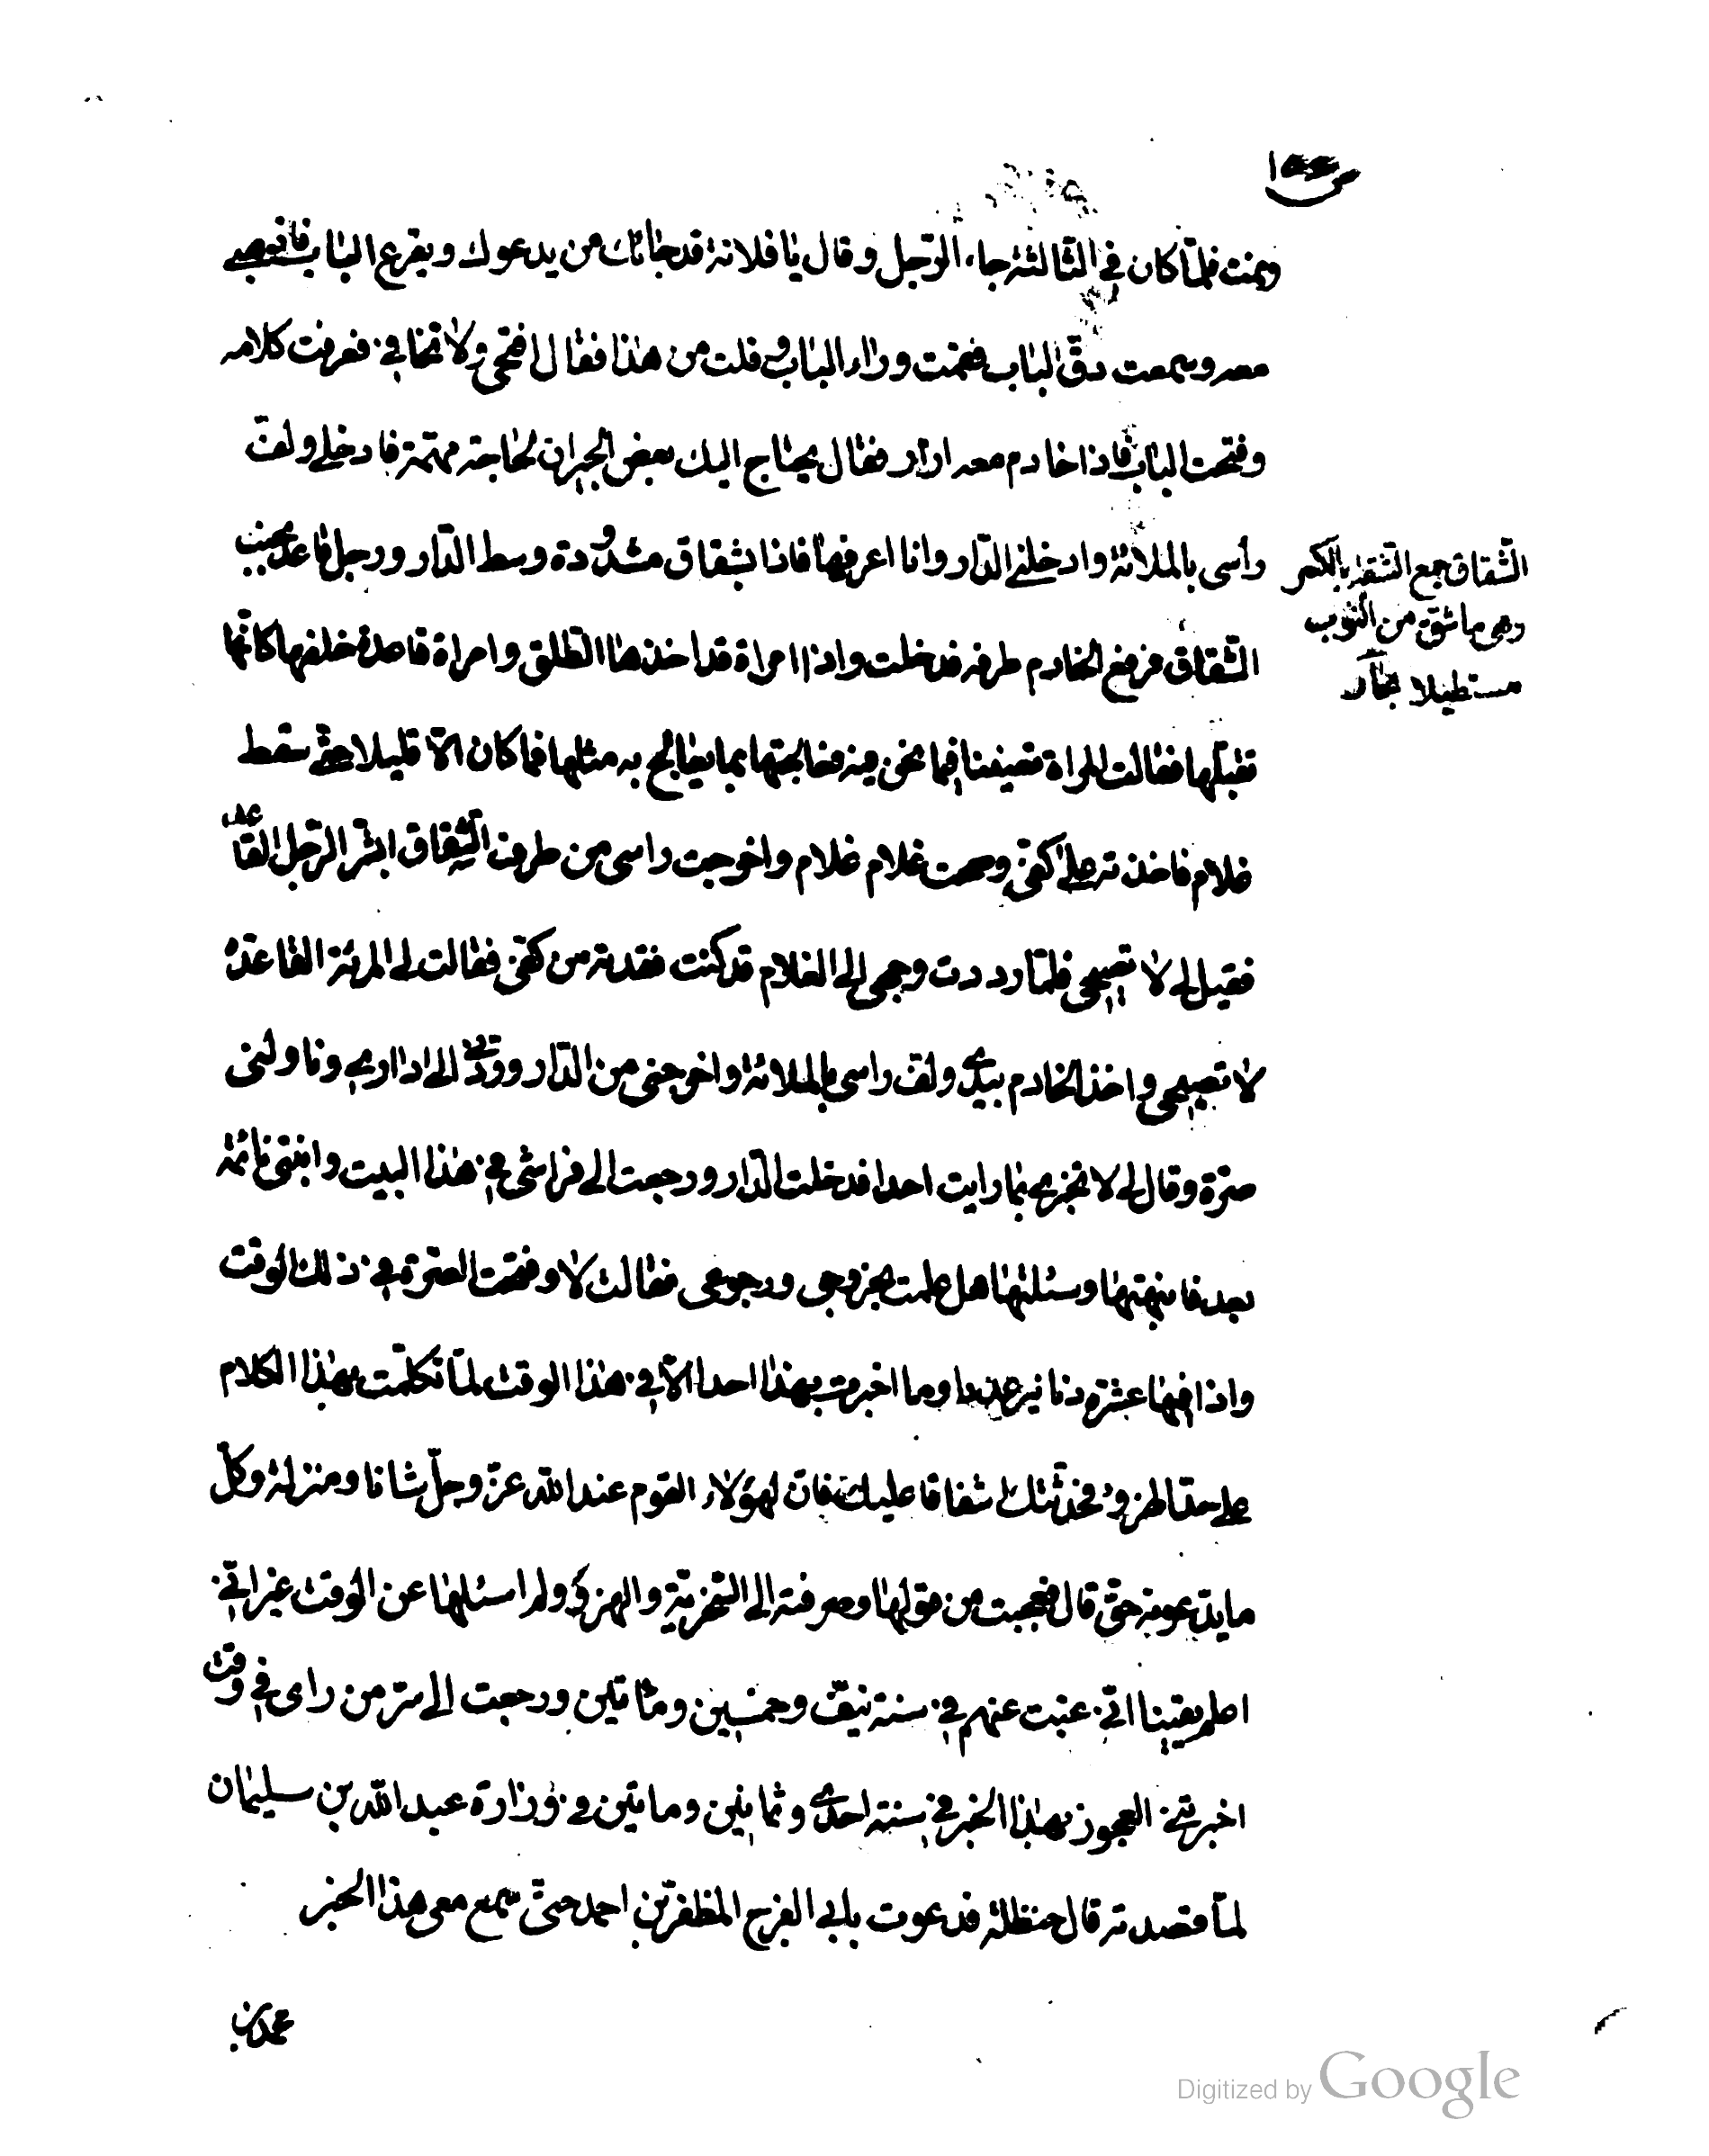 ونمت فلمّا كان في الثّالثة جاء الرّجل وقال يا فلانة قد جائك من يدعوك ويقرع الباب فاذهبي
معه وسمعت دقّ الباب فقمت وراء الباب وقلت من هذا فقال افتحي ولا تخافي فعرفت كلامه
وفتحت الباب فاذا خادم معه ازار فقال يحتاج اليك بعض الجيران لحاجة مهمّة فادخلي ولفّ
رأسي بالملائة وادخلني الدّار وانا اعرفها فاذا بشقاق مشدودة وسط الدّار ورجل قاعد بجنب
الشّقاق فرفع الخادم طرفه فدخلت واذا امراة قد اخذها الطّلق وامراة قاعدة خلفها كانّها
تقبلها فقالت المراة تعيننا فيما نحن فيه فعالجتها بما يعالج به مثلها فما كان الّا قليلا حتّى سقط
غلام فاخذته على كفّي وصحت غلام غلام واخرجت راسي من طرف الشّقاق ابشّر الرّجل القاعد
فقيل لي لا تصيحي فلمّا رددت وجهي الى الغلام قد كنت فقدته من كفّي فقالت لي المرئة القاعدة
لا تصيحي واخذ الخادم بيدي ولفّ راسي بالملائة واخرجني من الدّار وردّني الى داري وناولني
صرّة وقال لي لا تخبري بما رايت احدا فدخلت الدّار ورجعت الى فراشي في هذا البيت وابنتي نائمة
بعد فانبهتها وسئلتها هل علمت بخروجي ورجوعي فقالت لا وفتحت الصّرة في ذلك الوقت
واذا فيها عشرة دنانير عددا وما اخبرت بهذا احدا الّا في هذا الوقت لمّا تكلّمت بهذا الكلام
على حدّ الهزو فحدّثتك اشفاقا عليك فانّ لهؤلاء القوم عند الله عزّ وجلّ شانا ومنزلة وكلّ
ما يدّعونه حقّ قال فعجبت من قولها وصرفته الى السّخريّة والهزو ولم اسئلها عن الوقت غير انّي
اعلم يقينا انّي غبت عنهم في سنة نيّف وخمسين ومائتين ورجعت الى سرّ من راى في وقت
اخبرتني العجوز بهذا الخبر في سنة احدى وثمانين ومائتين في وزارة عبد الله بن سليمان
لمّا قصدته قال حنظلة فدعوت بابي الفرج المظفّر بن احمد حتّى سمع معي هذا الخبر
محمّد بن
الشّقاق جمع الشّقة بالكسر
وهي ما شقّ من الثوب
مستطيلا بحار
Digitized by Google